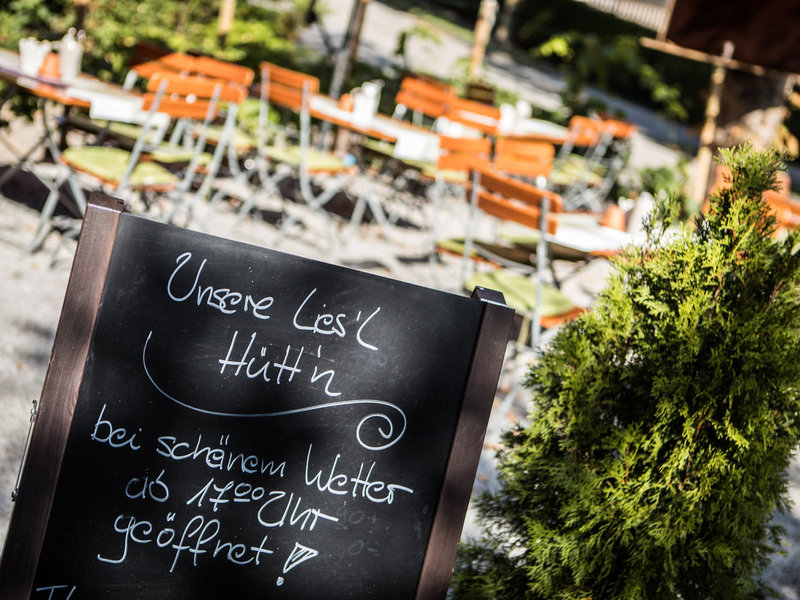 Unsere Lies'l
Hütt'n
bei schönem Wetter
ab 17⁰⁰ Uhr
geöffnet!